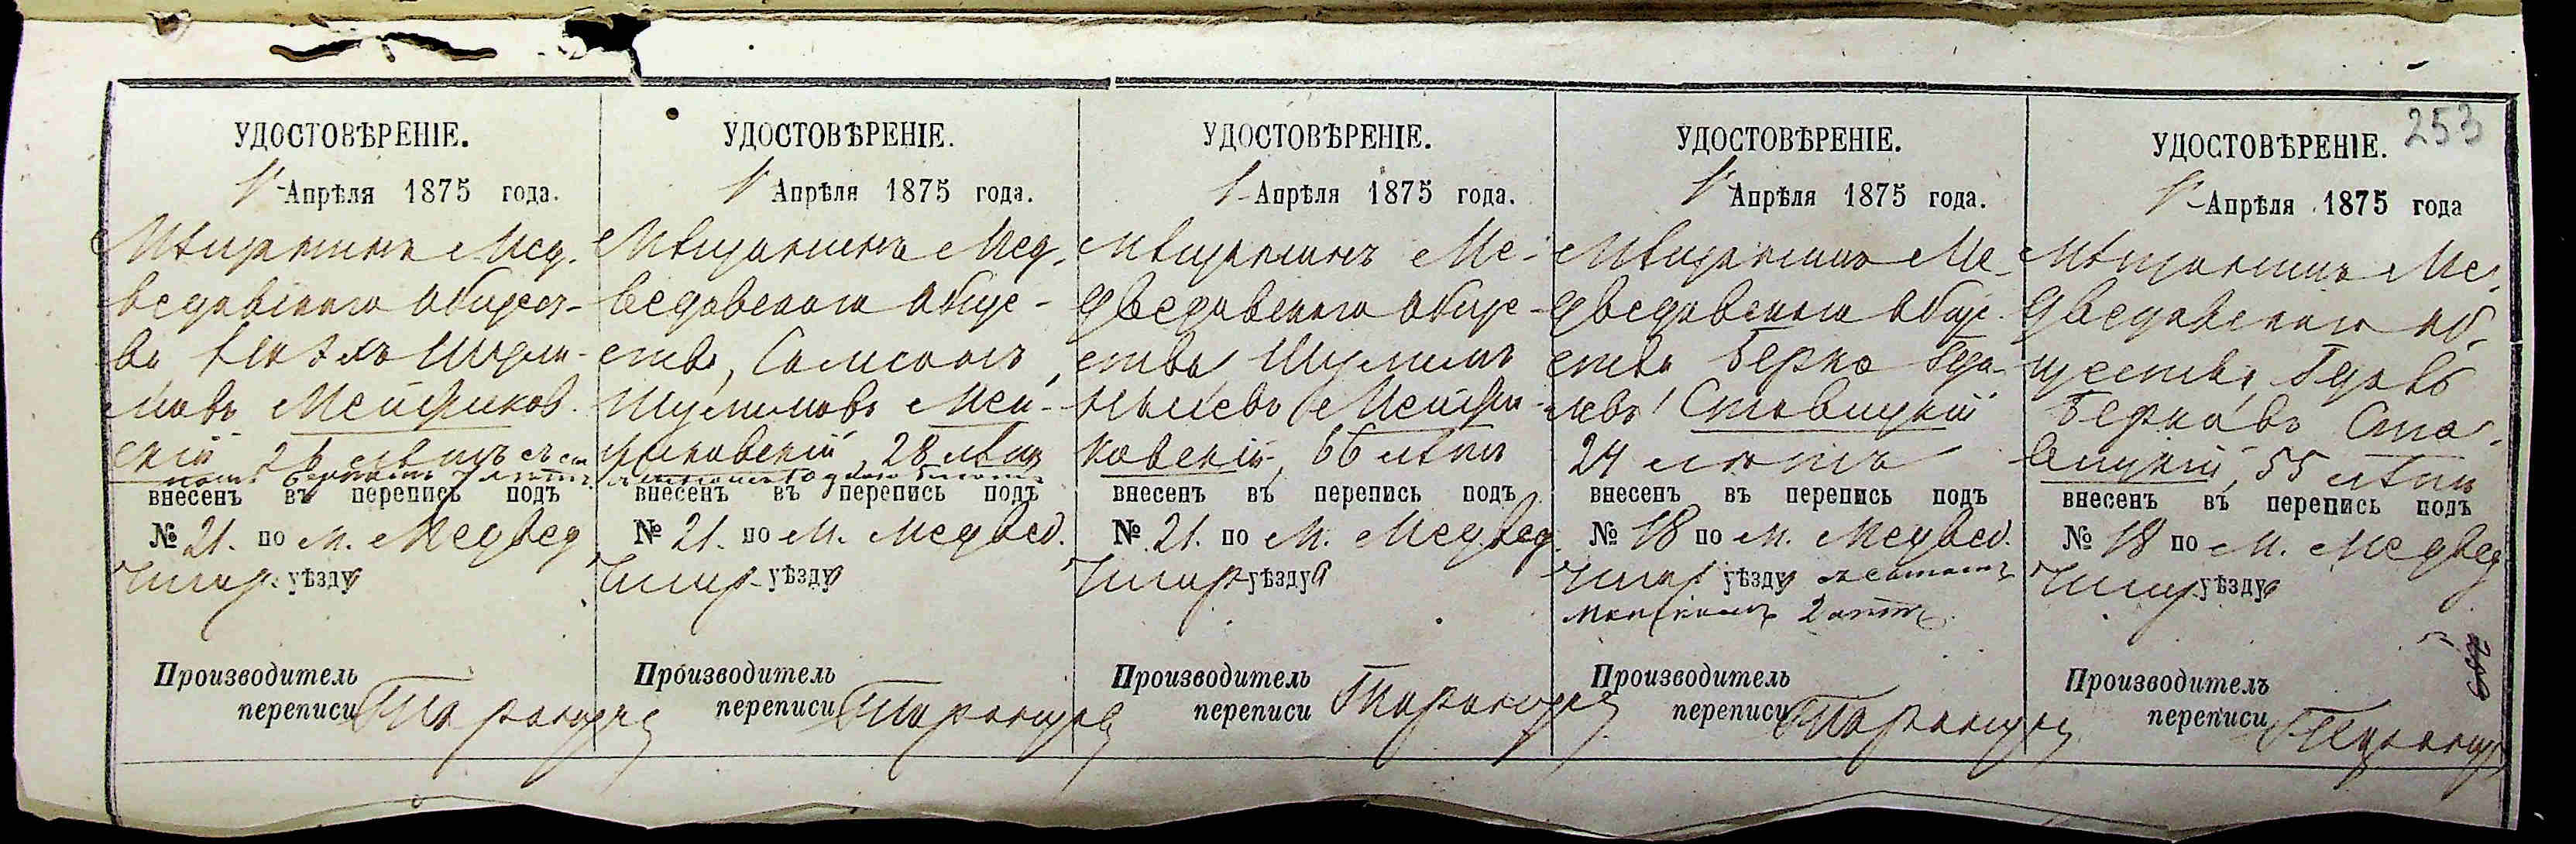 253
УДОСТОВѢРЕНІЕ.
1 Апрѣля 1875 года.
Мѣщанинъ Мед-
ведовскаго общест-
ва Шулимовъ Мейдиков-
скій
внесенъ въ перепись подъ
№ 21. по м. Медвед
Чигир. уѣзду
Производитель
переписи
УДОСТОВѢРЕНІЕ.
1 Апрѣля 1875 года.
Мѣщанинъ Мед-
ведовскаго обще-
ства, Самсонъ
Шулимовъ Мей-
диковскій, 28 лѣтъ
внесенъ въ перепись подъ
№ 21. по м. Медвед.
Чигир. уѣзду
Производитель
переписи
УДОСТОВѢРЕНІЕ.
1 Апрѣля 1875 года.
Мѣщанинъ Ме-
дведовскаго обще-
ства Шулимъ
Мейди-
ковскій, 66 лѣтъ
внесенъ въ перепись подъ
№ 21. по м. Медвед.
Чигир. уѣзду
Производитель
переписи
УДОСТОВѢРЕНІЕ.
1 Апрѣля 1875 года.
Мѣщанинъ Ме-
дведовскаго обще-
ства Берко
Ставицкій
24 лѣтъ
внесенъ въ перепись подъ
№ 18 по м. Медвед.
Чигир. уѣзду съ сыномъ
2 лѣтъ
Производитель
переписи
УДОСТОВѢРЕНІЕ.
1 Апрѣля 1875 года
Мѣщанинъ Ме-
дведовскаго об-
щества,
Берковъ Ста-
вицкій, 55 лѣтъ
внесенъ въ перепись подъ
№ 18 по м. Медвед
Чигир. уѣзду
Производитель
переписи